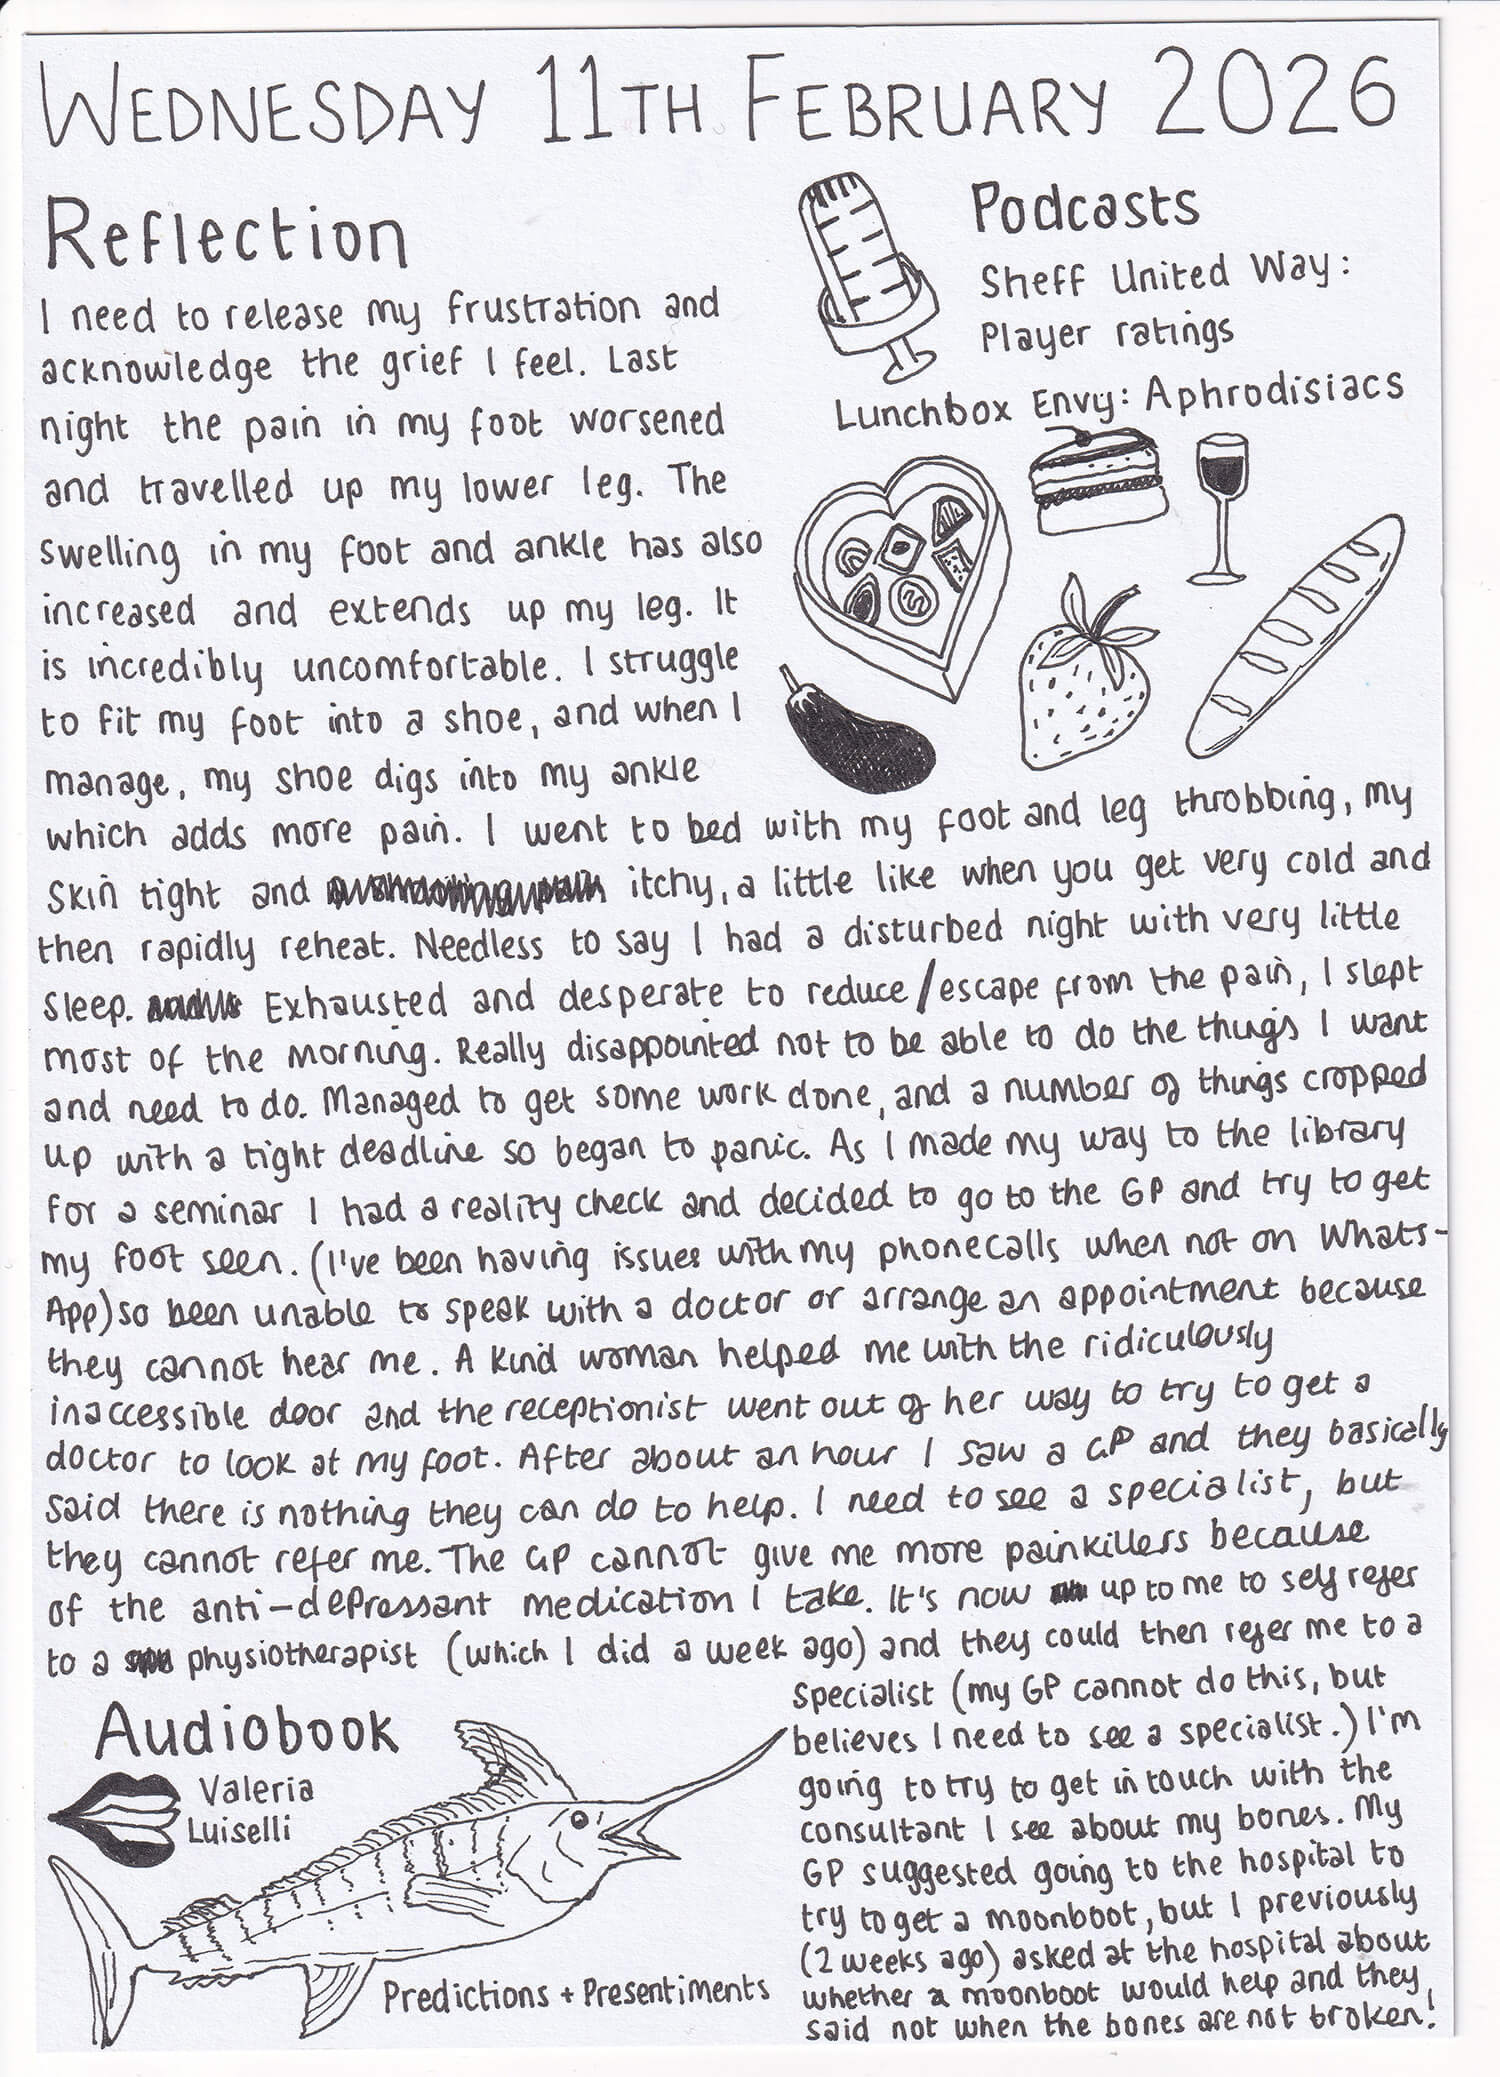 WEDNESDAY 11TH FEBRUARY 2026
Reflection
I need to release my frustration and
acknowledge the grief I feel. Last
night the pain in my foot worsened
and travelled up my lower leg. The
swelling in my foot and ankle has also
increased and extends up my leg. It
is incredibly uncomfortable. I struggle
to fit my foot into a shoe, and when I
manage, my shoe digs into my ankle
which adds more pain. I went to bed with my foot and leg throbbing, my
skin tight and itchy, a little like when you get very cold and
then rapidly reheat. Needless to say I had a disturbed night with very little
sleep. Exhausted and desperate to reduce/escape from the pain, I slept
most of the morning. Really disappointed not to be able to do the things I want
and need to do. Managed to get some work done, and a number of things cropped
up with a tight deadline so began to panic. As I made my way to the library
for a seminar I had a reality check and decided to go to the GP and try to get
my foot seen. (I've been having issues with my phonecalls when not on Whats-
App) so been unable to speak with a doctor or arrange an appointment because
they cannot hear me. A kind woman helped me with the ridiculously
inaccessible door and the receptionist went out of her way to try to get a
doctor to look at my foot. After about an hour I saw a GP and they basically
said there is nothing they can do to help. I need to see a specialist, but
they cannot refer me. The GP cannot give me more painkillers because
of the anti-depressant medication I take. It's now up to me to self refer
to a physiotherapist (which I did a week ago) and they could then refer me to a
specialist (my GP cannot do this, but
believes I need to see a specialist.) I'm
going to try to get in touch with the
consultant I see about my bones. My
GP suggested going to the hospital to
try to get a moonboot, but I previously
(2 weeks ago) asked at the hospital about
whether a moonboot would help and they
said not when the bones are not broken!
Podcasts
Sheff United Way:
Player ratings
Lunchbox Envy: Aphrodisiacs
Audiobook
Valeria
Luiselli
Predictions + Presentiments